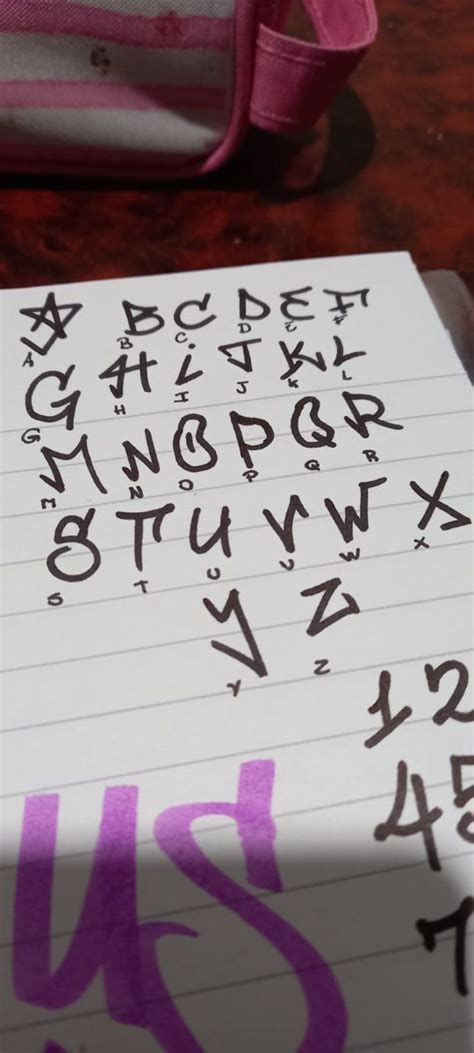 A B C D E F
A B C D E F
G H I J K L
G H I J K L
M N O P Q R
M N O P Q R
S T U V W X
S T U V W X
Y Z
Y Z
12
45
7
US